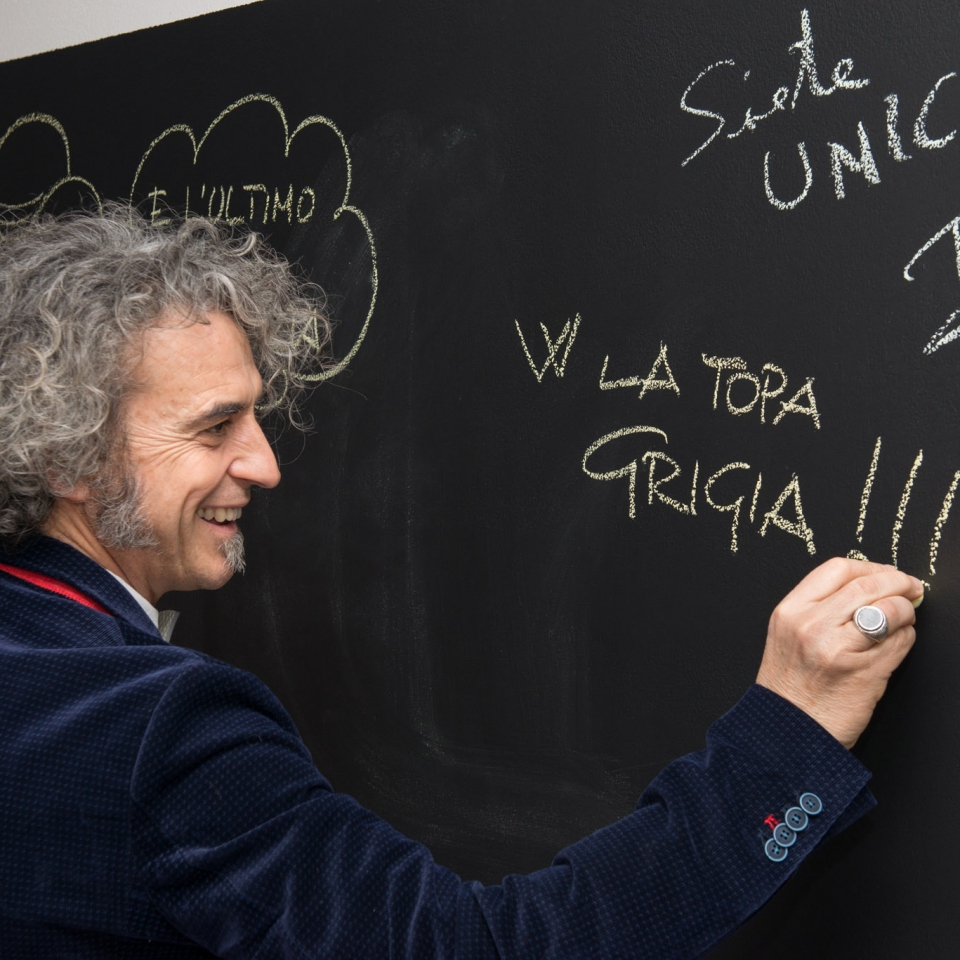 E L'ULTIMO
Siete
UNIC
W LA TOPA
GRIGIA!!!